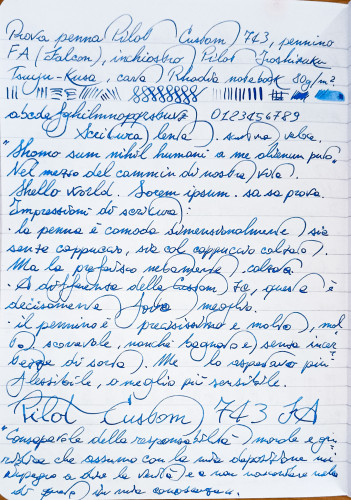 Prova penna Pilot Custom 743, pennino
FA (Falcon), inchiostro Pilot Iroshizuku
Tsuyu-Kusa, carta Rhodia notebook 80g/m²
abcdefghilmnopqrstuvz 0123456789
Scrittura lenta, scrittura veloce.
"Homo sum nihil humani a me alienum puto"
Nel mezzo del cammin di nostra vita.
Hello world. Lorem ipsum. sa sa prova.
Impressioni di scrittura:
. la penna è comoda dimensionalmente sia
senza cappuccio, sia col cappuccio calzato.
Ma la preferisco nettamente calzata
. A differenza della Custom 74, questa è
decisamente meglio.
. il pennino è precisissimo e molto, mol
to scorrevole, nonché bagnato e senza incer
tezze di sorta. Me lo aspettavo più
flessibile, o meglio più sensibile.
Pilot Custom 743 FA
"Consapevole della responsabilità morale e giu
ridica che assumo con la mia deposizione mi
impegno a dire la verità e a non nascondere nulla
di quanto in mia conoscenza.